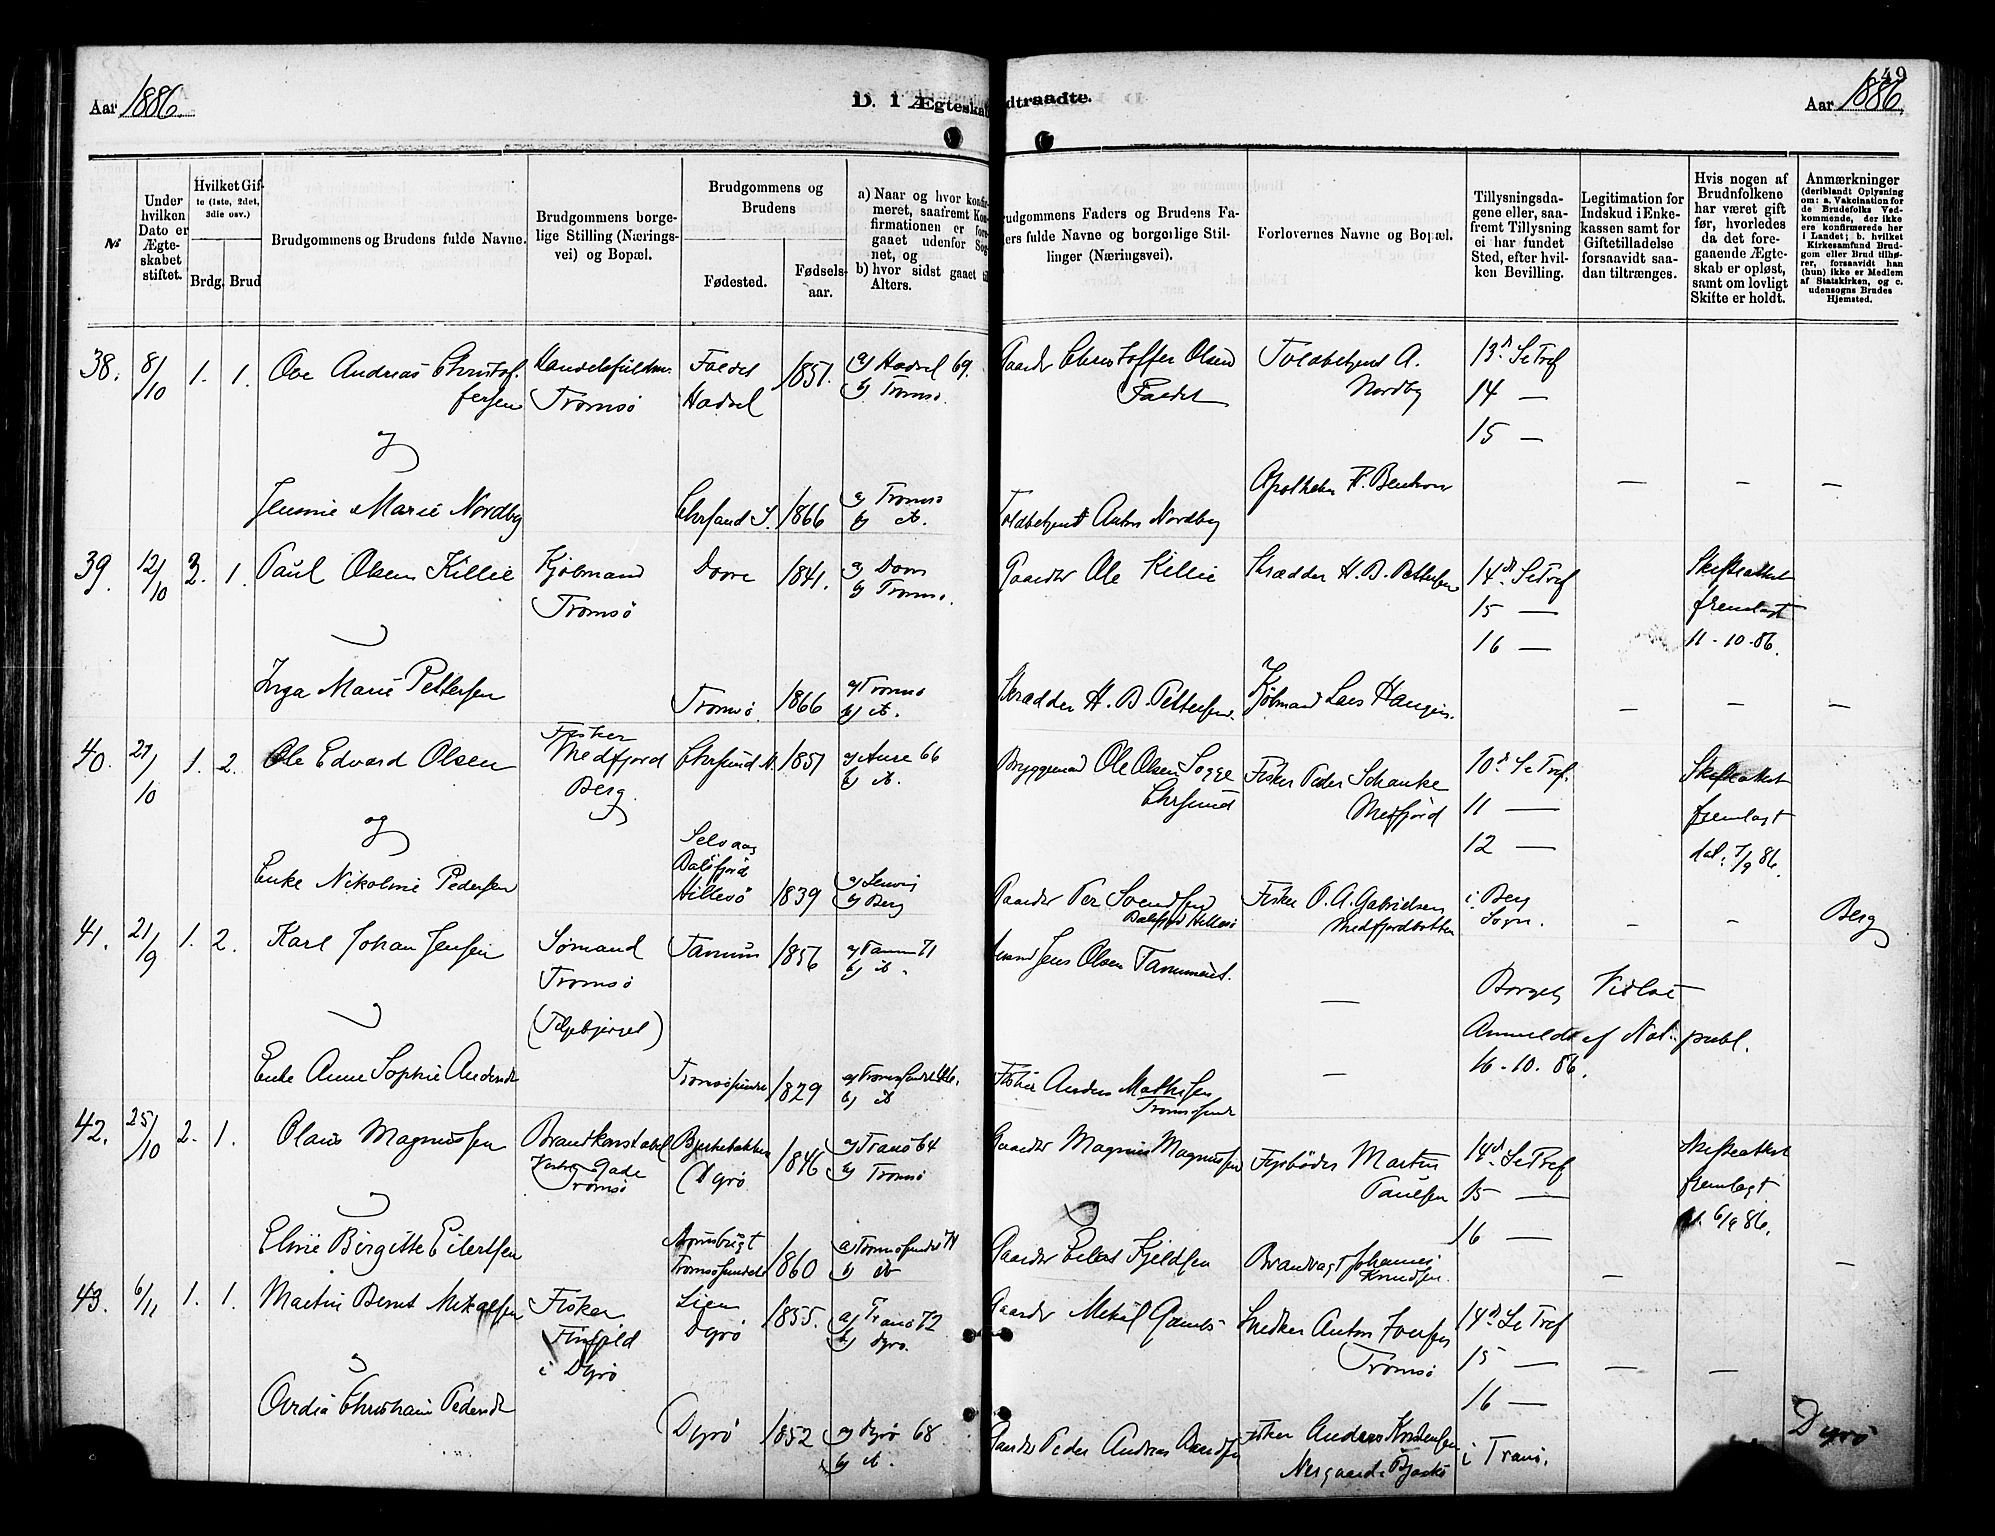 49
Aar 1886.
B. I Ægteskab
dtraadte.
Aar 1886.
No
Under hvilken Dato er Ægteskabet stiftet.
Hvilket Gifte (1ste, 2det, 3die osv.)
Brdg. Brud
Brudgommens og Brudens fulde Navne.
Brudgommens borgelige Stilling (Næringsvei) og Bopæl.
Brudgommens og Brudens
Fødested.
Fødselsaar.
a) Naar og hvor konfirmeret, saafremt Konfirmationen er foregaaet udenfor Sognet, og
b) hvor sidst gaaet til Alters.
rudgommens Faders og Brudens Faders fulde Navne og borgerlige Stillinger (Næringsvei).
Forlovernes Navne og Bopæl.
Tillysningsdagene eller, saafremt Tillysning ei har fundet Sted, efter hvilken Bevilling.
Legitimation for Indskud i Enkekassen samt for Giftetilladelse forsaavidt saadan tiltrænges.
Hvis nogen af Brudnfolkene har været gift før, hvorledes da det foregaaende Ægteskab er opløst, samt om lovligt Skifte er holdt.
Anmærkninger
(deriblandt Oplysning om: a. Vakcination for de Brudefolks Vedkommende, der ikke ere konfirmerede her i Landet; b. hvilket Kirkesamfund Brudgom eller Brud tilhører, forsaavidt han (hun) ikke er Medlem af Statskirken, og c. udensogns Brudes Hjemsted.
38. 8/10 1. 1. Ove Andreas Christoffersen
Tromsö
Hadsel
1851.
a) Hadsel 69.
b) Tromsö.
Gaardbr Christoffer Olsen
Toldbetjent A. Nordby
13d S e Tref
14 —
15 —
og
Jensine Marie Nordby
Chrsand S. 1866
a) Tromsö
b) do.
Toldbetjent Anton Nordby
Apotheker
— — —
39. 12/10 2. 1. Paul Olsen Killie
Kjöbmand
Tromsö
Dovre 1841.
a) Dovre
b) Tromsö.
Gaardbr Ole Killie
Skrædder H. B. Pettersen
14d S e Tref
15 —
16 —
Skifteattest
fremlagt
11-10-86.
Inga Marie Pettersen
Tromsö. 1866
a) Tromsö
b) do.
Skrædder H. B. Pettersen.
Kjöbmand Lars Haugen.
— — —
40. 21/10 1. 2. Ole Edvard Olsen
Fisker
Medfjord
Berg.
Chrsund N. 1851
a) Aure 66
b) do.
Ole Olsen Sogge
Chrsund
Fisker Peder Schanke
Medfjord
10d S e Tref.
11 —
12 —
Skifteattest
fremlagt
dat. 7/9 86.
og
Enke Nikoline Pedersen
Selvaag
Hillesö 1839
a) Lenvig
b) Berg
Gaardbr Per Svendsen
Fisker O. A. Gabrielsen
Medfjordbotten
i Berg
Sogn.
— —
Berg
41. 21/9 1. 2. Karl Johan Jensen
Sömand
Tromsö
Tanum 1856
a) Tanum 71
b) do.
Jens Olsen
—
Borgerlig Vielse
Anmeldt af Not. publ.
16-10-86.
Enke Anne Sophie Andersdt
Tromsösundet 1829
b) do
Fisker Anders Mathisen
Tromsösundet
—
42. 25/10 2. 1. Olaus Magnussen
Brandkonstabel
Gade
Tromsö
Bjerkebakken
Dyrö 1846
a) Tranö 64
b) Tromsö
Gaardbr Magnus Magnussen
Fyrböder Martin
Paulsen
14d S e Tref
15 —
16 —
Skifteattest
fremlagt
6/9 86.
Eline Birgitte Eilertsen
Tromsösundet 1860
a) Tromsösundet 74
b) do
Gaardbr Eilert Kjeldsen
Brandvagt Johannes
Knudsen.
— —
43. 6/11 1. 1. Martin Bernt Mikalsen
Fisker
i Dyrö
Lien
Dyrö 1855.
a) Tranö 72
b) Dyrö.
Gaardbr
Snedker Anton
Tromsö
14d S e Tref
15 —
16 —
— —
og
Christiane Pedersdt
Dyrö 1852
a) Dyrö 68
b) do.
Gaardbr Peder Andreas
Fisker Anders
i Tranö.
Dyrö